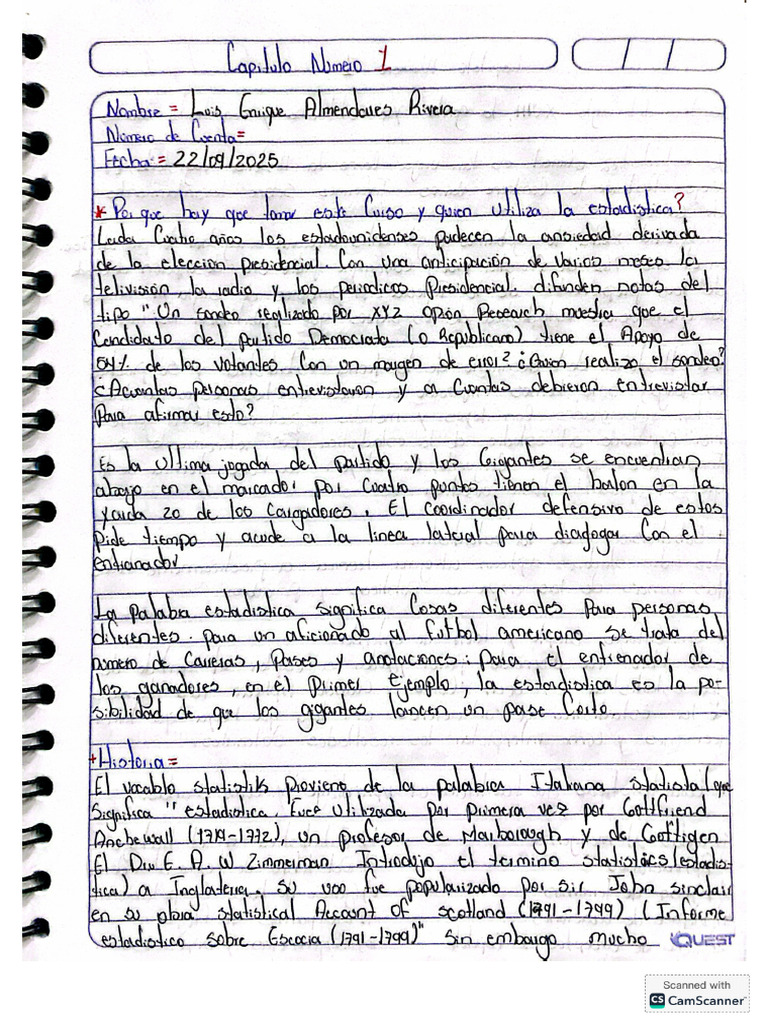 Capitulo Numero 1
Nombre = Luis Enrique Almendares Rivera
Número de Cuenta=
Fecha = 22/09/2025
* Por que hay que tomar este Curso y quien utiliza la estadistica?
Cada Cuatro años los estadounidenses padecen la ansiedad derivada
de la eleccion presidencial. Con una anticipación de varios meses la
television, la radio y los periodicos Presidencial. difunden notas del
tipo " Un sondeo realizado por XYZ opion Research muestra que el
Candidato del partido Democrata (o Republicano) tiene el Apoyo de
54% de los votantes. Con un margen de error? ¿Quien realizo el sondeo?
¿A cuantas personas entrevistaron y a Cuantas debieron entrevistar
Para afirmar esto?
Es la ultima jugada del partido y los Gigantes se encuentran
abajo en el marcador por Cuatro puntos tienen el balon en la
yarda 20 de los Cargadores. El Coordinador defensivo de estos
Pide tiempo y acude a la linea lateral para dialogar Con el
entranador
La Palabra estadistica significa Cosas diferentes Para personas
diferentes. para un aficionado al Futbol americano se trata del
numero de Carreras, Pases y anotaciones; Para el entrenador de
los ganadores, en el Primer Ejemplo, la estadistica es la po-
sibilidad de que los gigantes lancen un pase Corto
+ Historia =
El vocablo statistik Proviene de la palabra Italiana statista (que
significa " estadistica. Fuce utilizada por primera vez por Gottfriend
Anchewall (1719-1772), un profesor de Marlborough y de Gottigen
El Dr. E. A. W Zimmerman Introdujo el termino statistics (estadis-
tica) a Inglaterra. su uso fue popularizado por sir John sinclair
en su obra statistical Account of scotland (1791-1799) (Informe
estadistico sobre Escocia (1791-1799)" sin embargo mucho
QUEST
Scanned with
CS CamScanner